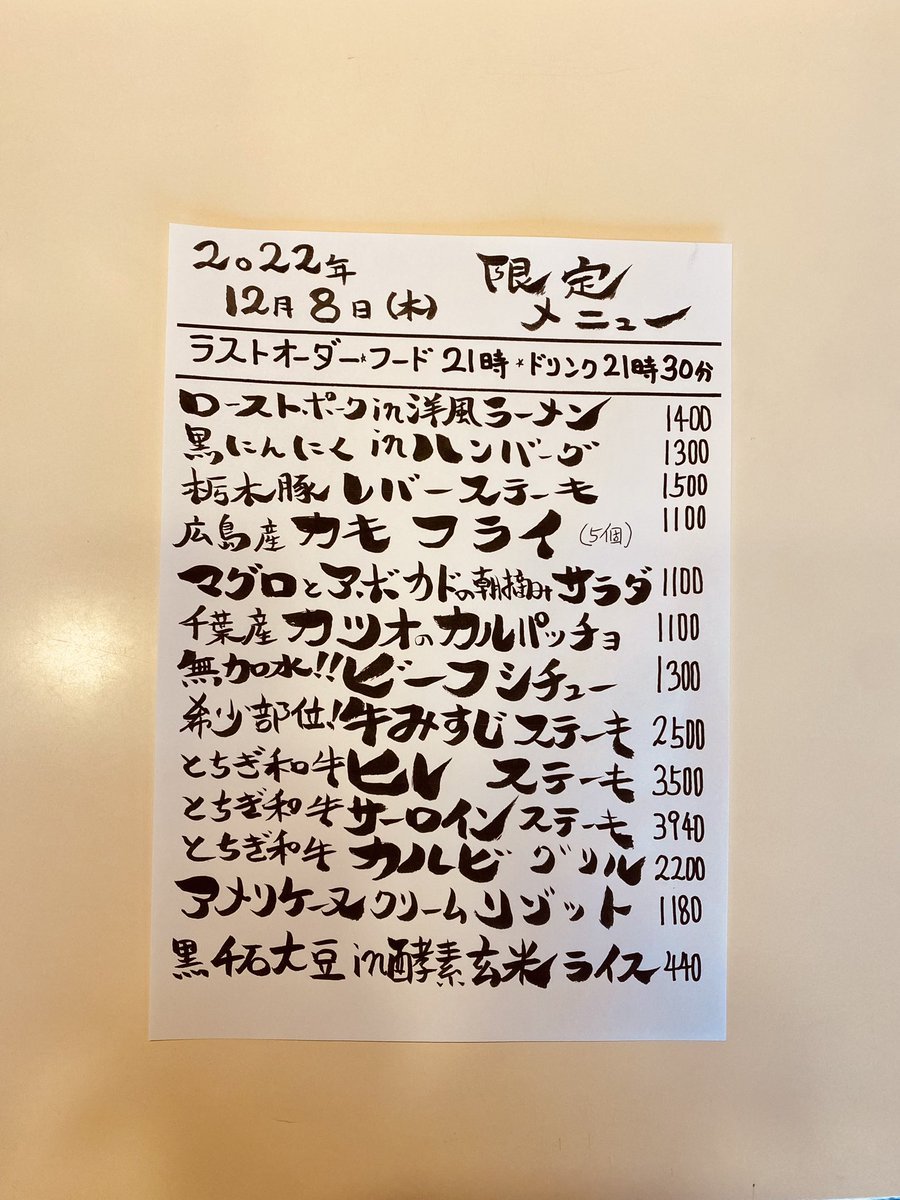 2022年
12月8日(木)
限定
メニュー
ラストオーダー*フード21時*ドリンク21時30分
ローストポークin洋風ラーメン 1400
黒にんにくinハンバーグ 1300
栃木豚レバーステーキ 1500
広島産カキフライ(5個) 1100
マグロとアボカドの朝摘みサラダ 1100
千葉産カツオのカルパッチョ 1100
無加水!!ビーフシチュー 1300
希少部位!牛みすじステーキ 2500
とちぎ和牛ヒレステーキ 3500
とちぎ和牛サーロインステーキ 3940
とちぎ和牛カルビグリル 2200
アメリケーヌクリームリゾット 1180
黒千石大豆in酵素玄米ライス 440